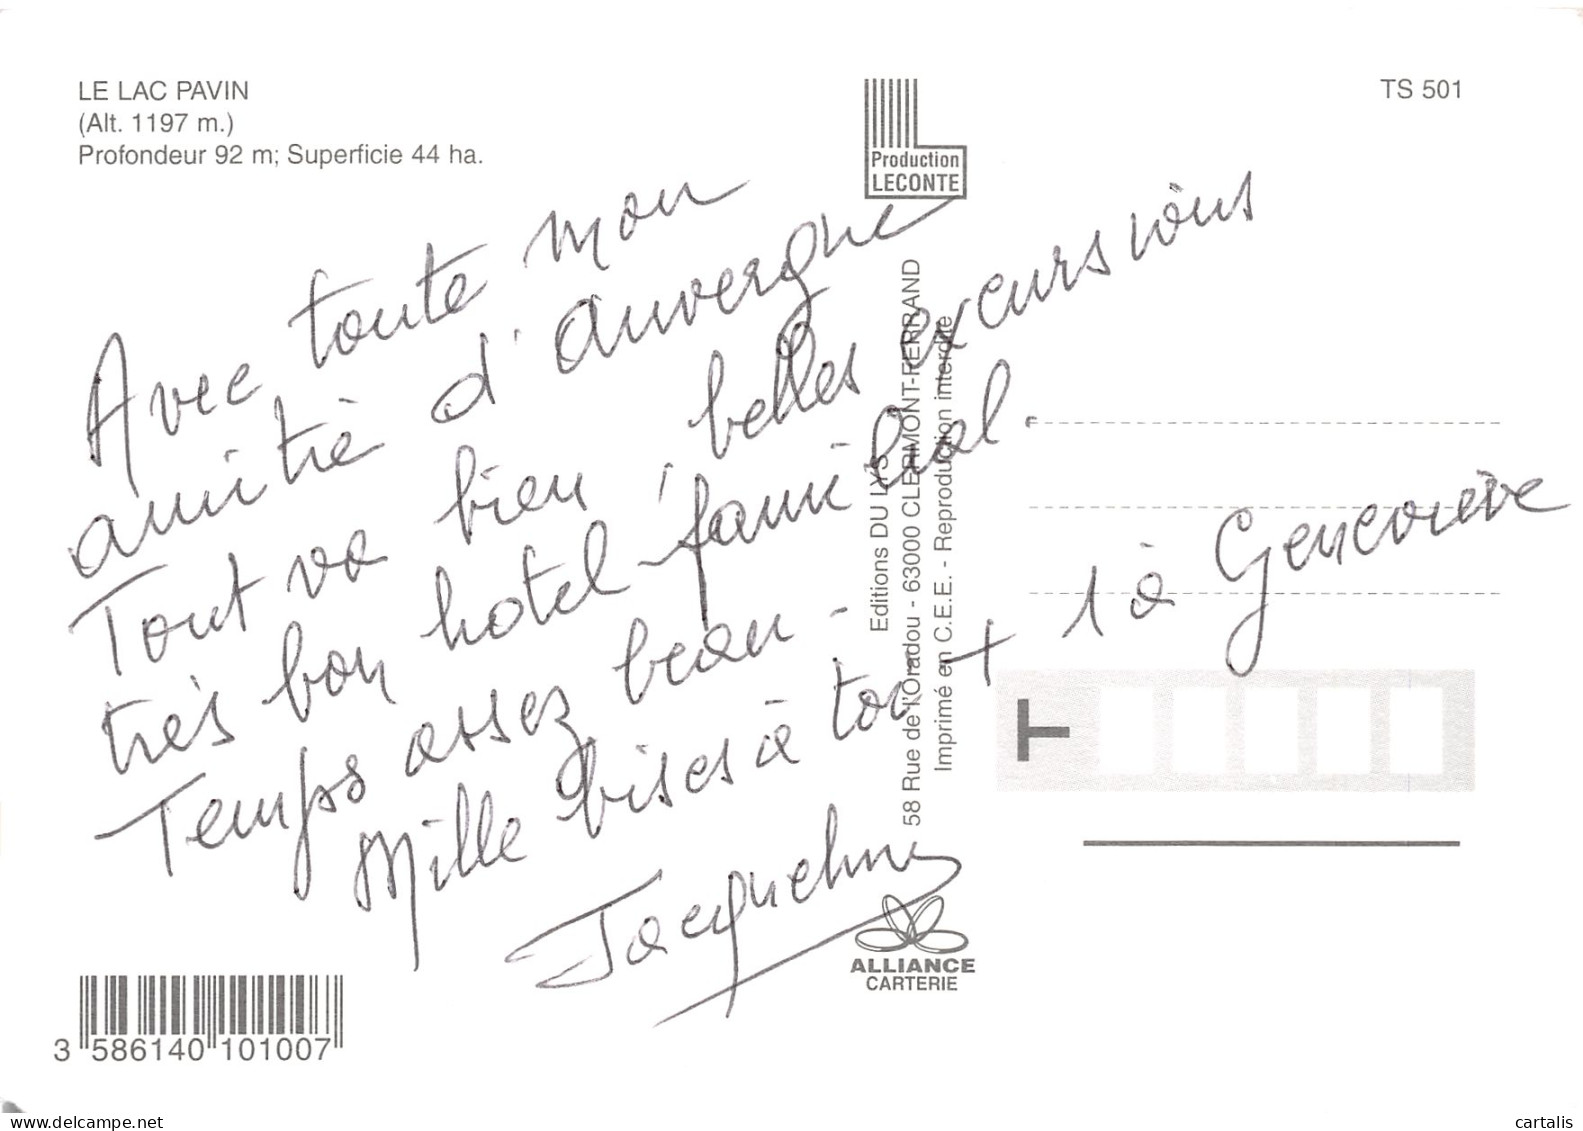 LE LAC PAVIN
(Alt. 1197 m.)
Profondeur 92 m; Superficie 44 ha.
Production
LECONTE
TS 501
Avec toute mon
amitié d'Auvergne
Tout va bien, belles excursions
très bon hotel familial.
Temps assez beau -
Mille bises à toi + 1 à Geneviève
Jacqueline
Editions DU LYS
58 Rue de l'Oradou - 63000 CLERMONT-FERRAND
Imprimé en C.E.E. - Reproduction interdite
T
ALLIANCE
CARTERIE
3 586140 101007
www.delcampe.net
cartalis